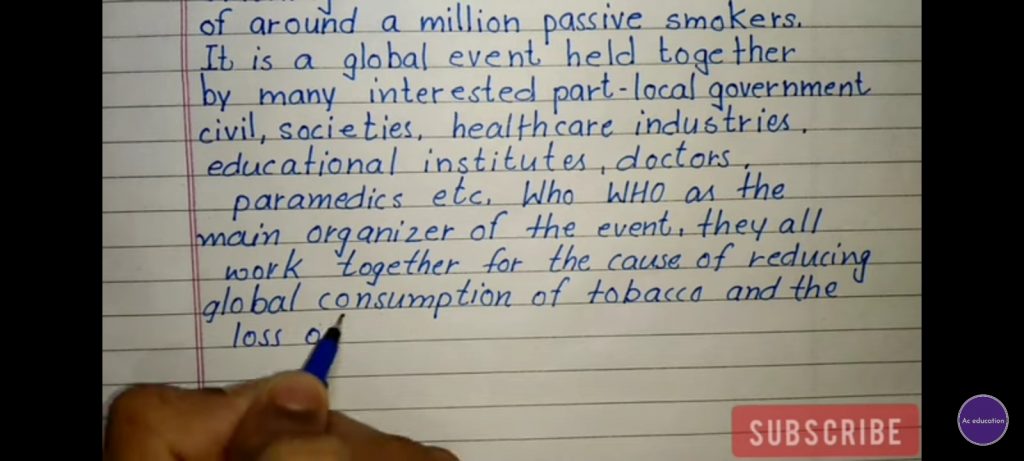 of around a million passive smokers.
It is a global event held together
by many interested part-local government
civil, societies, healthcare industries,
educational institutes, doctors,
paramedics etc. Who WHO as the
main organizer of the event, they all
work together for the cause of reducing
global consumption of tobacco and the
loss o
SUBSCRIBE
Ac education